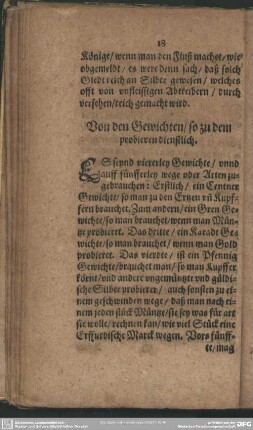 18
Könige/ wenn man den Fluß machet/ wie
obgemeldt/ es were denn sach/ daß solch
Giedt reich an Silber gewesen/ welches
offt von vnfleissigen Abtreibern/ durch
versehen/ reich gemacht wird.
Von den Gewichten/ so zu dem
probieren dienstlich.
ES seynd viererley Gewichte/ vnnd
auff fünfferley wege oder Arten zu
gebrauchen: Erstlich/ ein Centner
Gewichte/ so man zu den Ertzen vñ Kupf-
fern brauchet. Zum andern/ ein Gren Ge-
wichte/ so man brauchet/ wenn man Mün-
tze probieret. Das dritte/ ein Karadt Ge-
wichte/ so man brauchet/ wenn man Gold
probieret. Das vierdte/ ist ein Pfennig
Gewichte/ brauchet man/ so man Kupffer
körnt/ vnd andere vngemüntzte vnd güldi-
sche Silber probieret/ auch sonsten zu ei-
nem geschwinden wege/ daß man nach ei-
nem jeden stück Müntz/ sie sey was für art
sie wolle/ rechnen kan/ wie viel Stück eine
Erffurdische Marck wegen. Vors fünff-
te/ mag